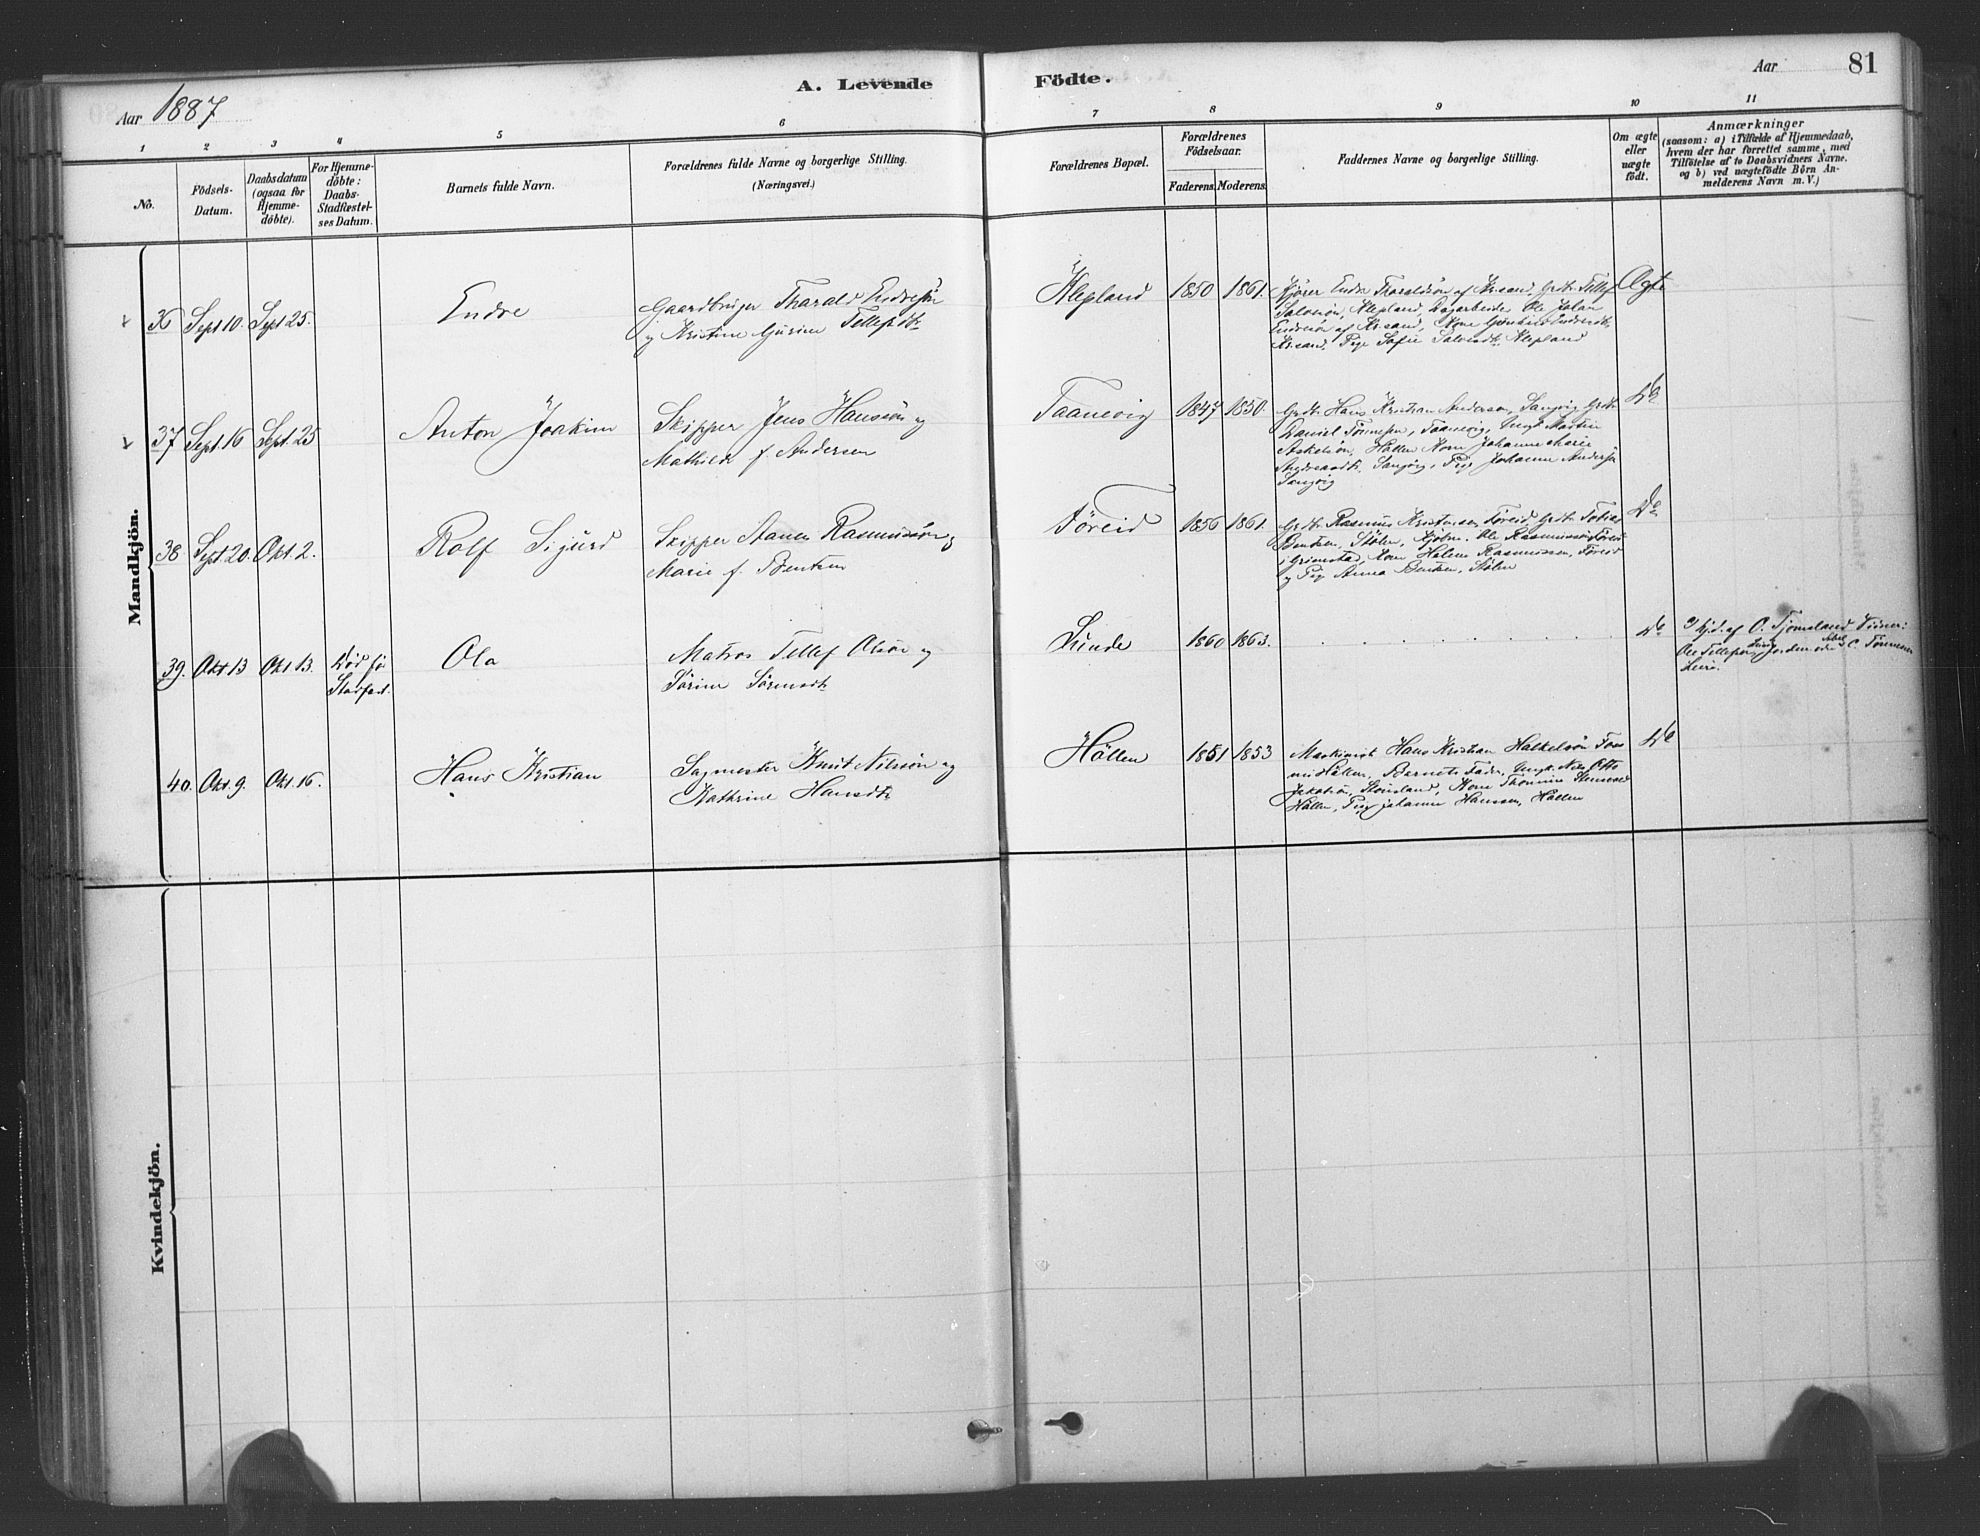 A. Levende Födte.
Aar 1887
Aar 81
1 2 3 4 5 6 7 8 9 10 11
No.
Födsels-Datum.
Daabsdatum (ogsaa for Hjemme-döbte).
For Hjemme-döbte: Daabs-Stadfæstel-ses Datum.
Barnets fulde Navn.
Forældrenes fulde Navne og borgerlige Stilling.
(Næringsvei.)
Forældrenes Bopæl.
Forældrenes Födselsaar.
Faderens. Moderens.
Faddernes Navne og borgerlige Stilling.
Om ægte eller uægte födt.
Anmærkninger
(saasom: a) i Tilfælde af Hjemmedaab,
hvem der har forrettet samme, med
Tilföielse af to Daabsvidners Navne.
og b) ved uægtefödte Börn An-
melderens Navn m. V.)
Mandkjön.
36 Sept 10. Sept 25. Endre
Gaardbruger Tharald Endresøn
og Kristine Gurine Tellefsdtr
Klepland 1850 1861.
Kjører Endre Tharaldsøn af Krsand, Grdbr Tellef
Salvesøn, Klepland, Dagarbeider Ole Johan
Endresøn af Krsand, Kone Endresdtr,
Krsand, Pige Sofie Salvesdtr Klepland
Ægte
37 Sept. 16 Sept. 25 Anton Joakim
Skipper Jens Hansen og
Mathilde f. Andersen
Taanevig 1847 1850.
Grdbr Hans Kristian Andersen, Langvig, Grdbr
Daniel Tønnesen, Taanevig, Ungk Martin
Askelsøn, Høllen, Kone Johanne Marie
Langvig, Pige Johanne Andersen
Langvig
Do
38 Sept. 20. Okt. 2. Rolf Sigurd
Skipper Aanen Rasmussøn og
Marie f. Bentsen
Føreid 1856 1861.
Grdbr Rasmus Kristensen Føreid, Grdbr Tobias
Bentsen, Stølen, Ole Rasmussøn Føreid
i Grimstad, Kone Helene Rasmussen, Føreid
og Pige Anna Bentsen, Stølen
Do
39. Okt 13 Okt 13. Død før
Stadfæst.
Ola
Matros Tellef Olsøn og
Sørine Sørensdtr
Lunde 1860 1863.
Do
Hjd. af O. Tjomsland Vidner:
Ole Tellefsen, Jordemoder C. Tønnesen
40. Okt. 9. Okt. 16. Hans Kristian
Sagmester Knut Nilssøn og
Kathrine Hansdtr
Høllen 1851 1853
Maskinist Hans Kristian Halkelsøn
Høllen, Barnets Fader, Ungk. Nils Otto
Jakobsøn, Stensland, Kone Thomine
Høllen, Pige Johanne Hanssen, Høllen
Do
Kvindekjön.